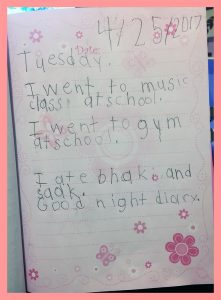 4/25/2017
Date:
Tuesday.
I went to music
class atschool.
I went to gym
atschool.
I ate bhak and
saak.
Good night diary.